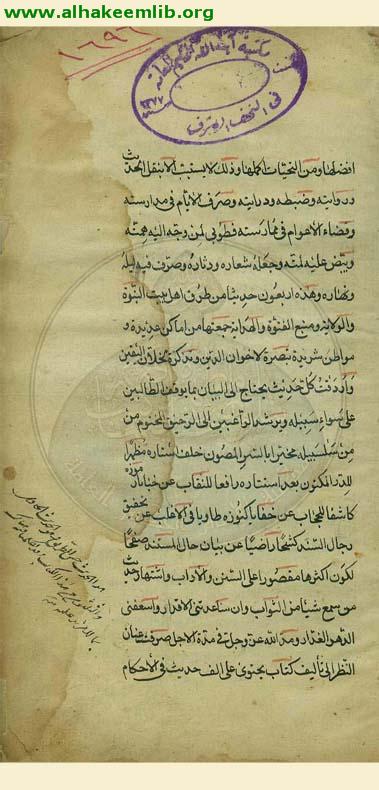 www.alhakeemlib.org
١٦٩٦
مكتبة آية الله الحكيم العامة
في النجف الاشرف
افضلها ومن التحيات اكملها وذلك لا يستتب الا بنقل الحديث
وروايته وضبطه ودرايته وصرف الايام في مدارسته
وقضاء الاعوام في ممارسته فطوبى لمن وجه اليه همته
وبيض عليه لمته وجعله شعاره ودثاره وصرف فيه ليله
ونهاره وهذه اربعون حديثا من طرق اهل بيت النبوة
والولاية ومنبع الفتوة والهداية جمعتها من اماكن عديدة و
مواطن شريدة تبصرة لاخوان الدين وتذكرة لخلان اليقين
واردفت كل حديث يحتاج الى البيان بما يوقف الطالبين
على سواء سبيله ويرشد الراغبين الى الرحيق المختوم من
من سلسبيله مخبرا بالسر المصون خلف استاره مظهرا
للدر المكنون بعد استتاره رافعا للنقاب عن خبايا رموزه
كاشفا للحجاب عن خفايا كنوزه طاويا في الاغلب عن تحقيق
رجال السند كشحا راضيا عن بيان حال المستند صفحا
لكون اكثرها مقصورا على السنن والاداب واشتهار حديث
من سمع شيئا من الثواب وان ساعدتني الاقدار واسعفني
الدهر الغدار ومد الله عز وجل في مدة الاجل صرفت عنان
النظر الى تأليف كتاب يحتوي على الف حديث في الاحكام